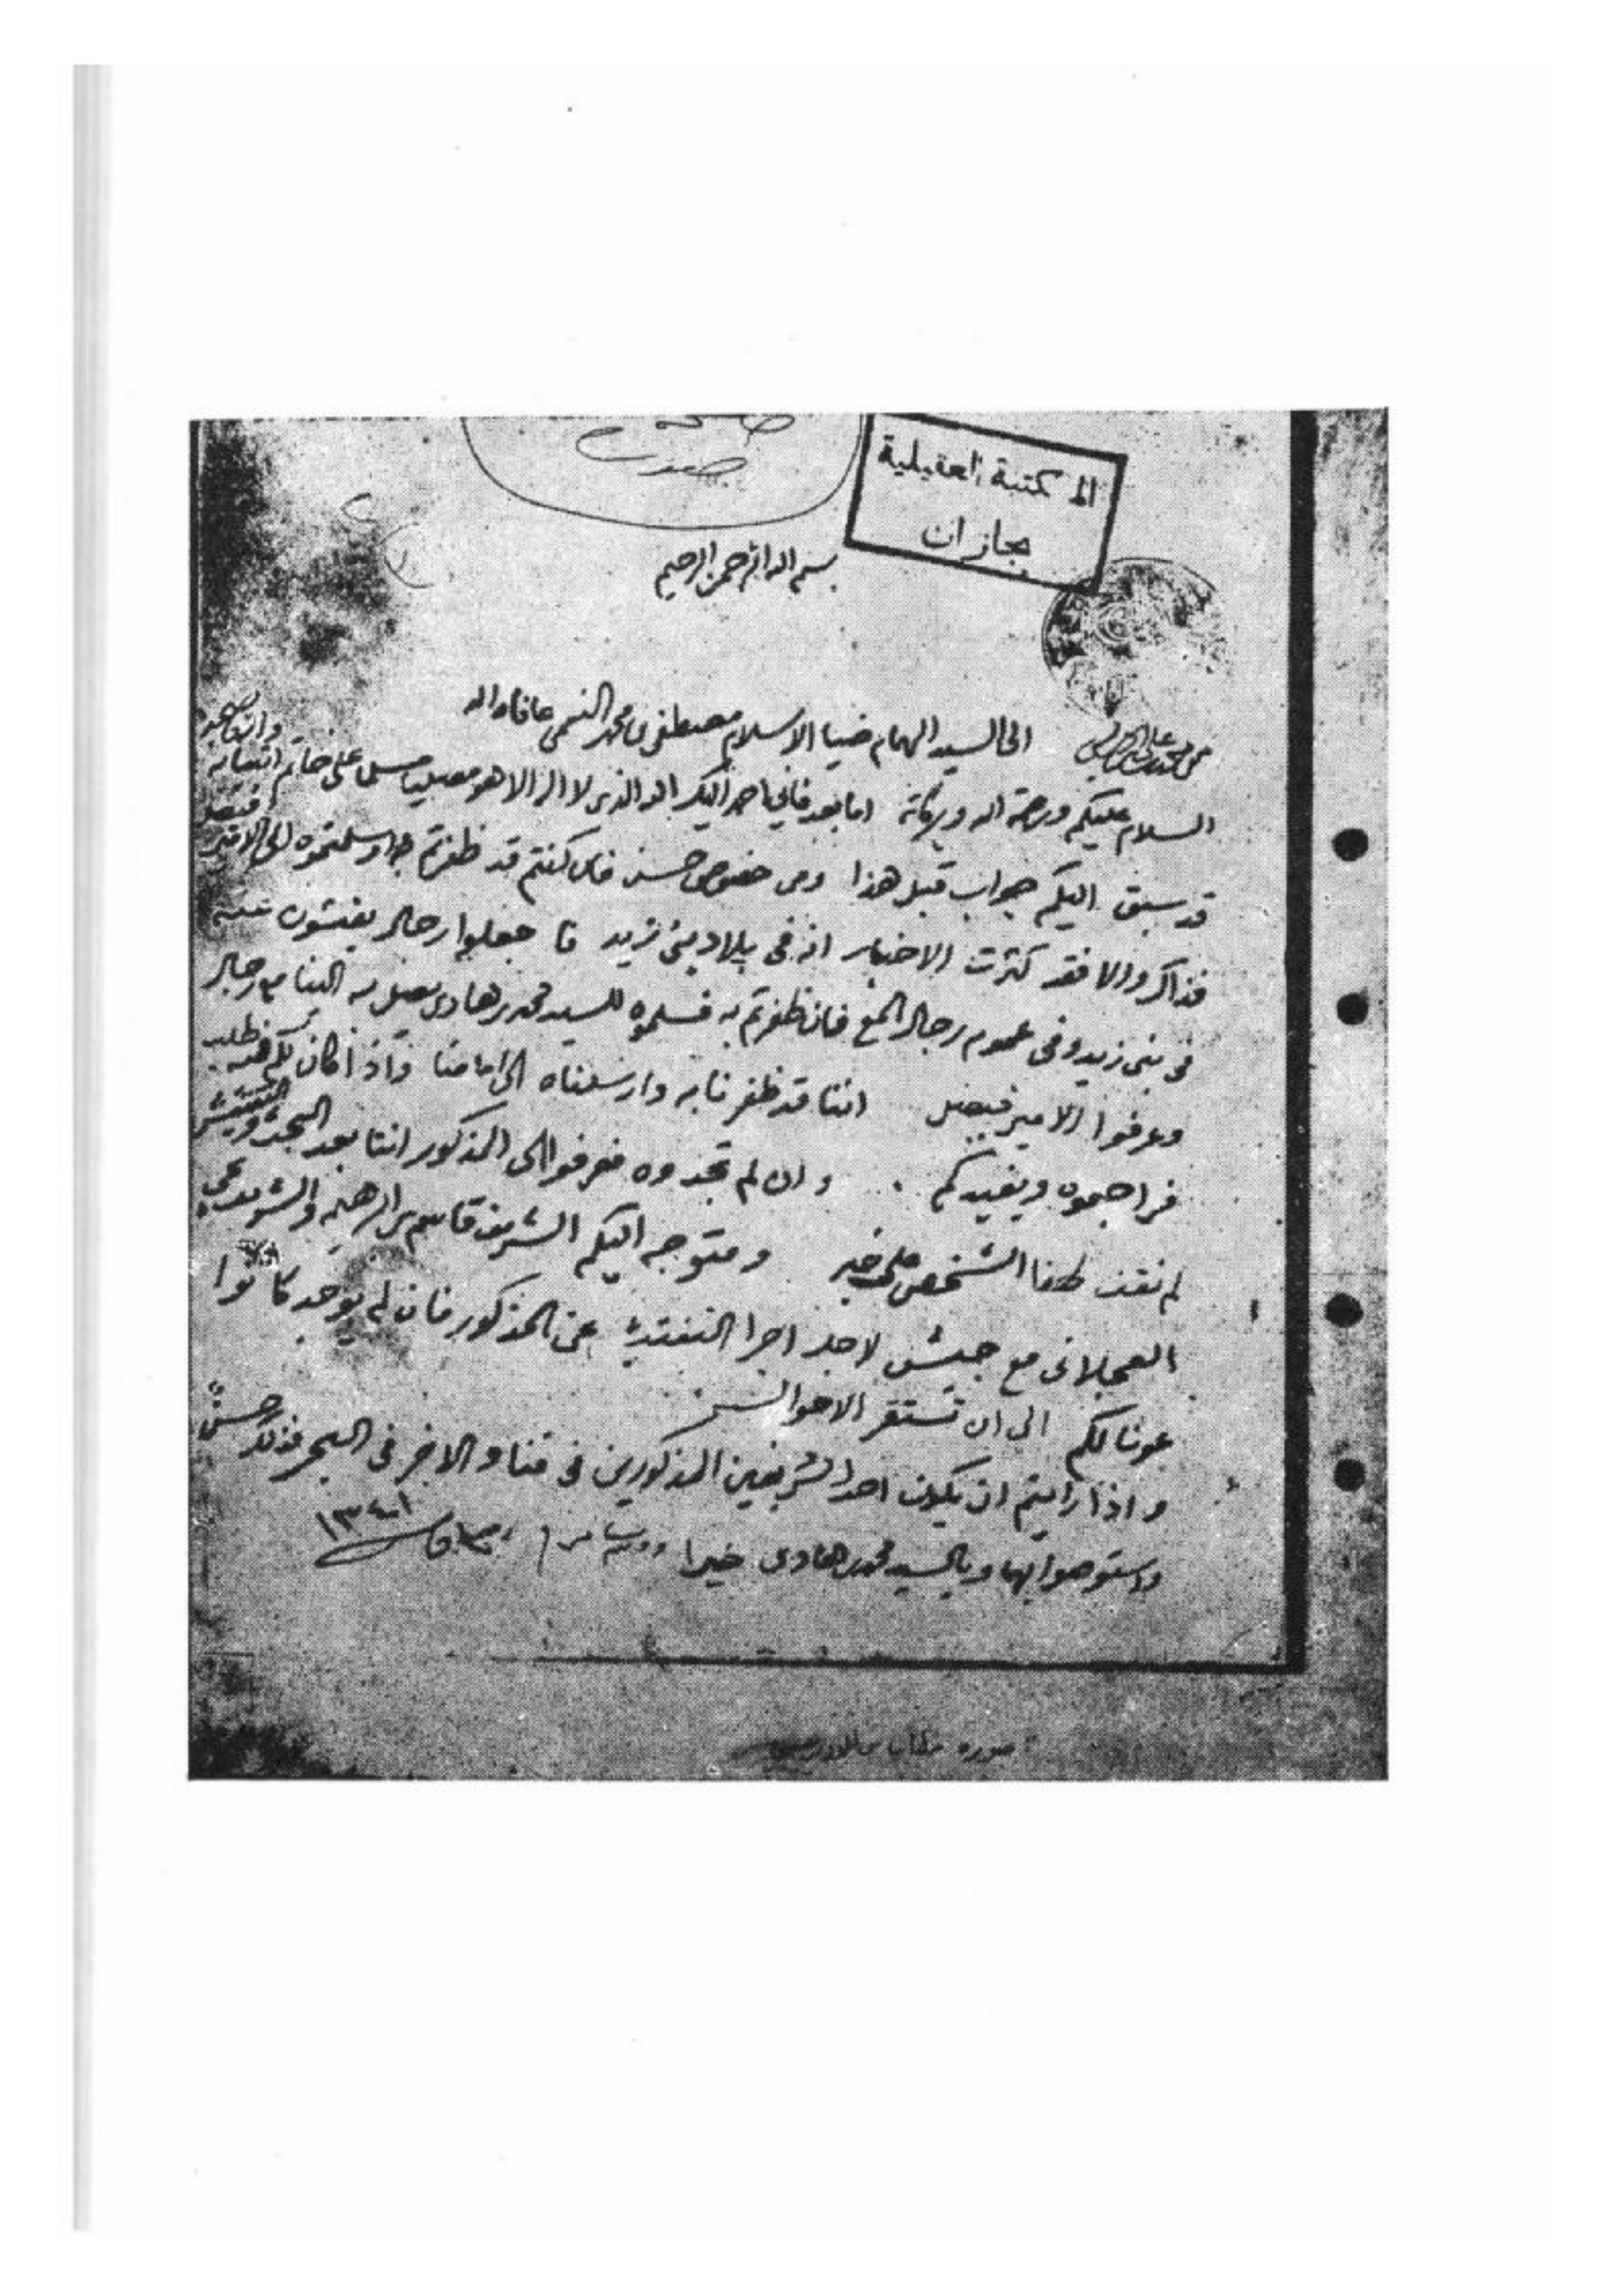 المكتبة العقيلية
بجازان
بسم الله الرحمن الرحيم
من محمد بن علي الى السيد الهمام ضيا الاسلام مصطفى بن محمد النعمي عافاه الله
السلام عليكم ورحمة الله وبركاته اما بعد فاني احمد اليكم الله الذي لا اله الا هو مصليا مسلما على خاتم انبيائه
قد سبق اليكم جواب قبل هذا ومن خصوص حسن فان كنتم قد ظفرتم به وسلمتموه الى الامير فيصل
فذاك والا فقد كثرت الاخبار انه في بلاد بني زيد فاجعلوا رجال يفتشون عنه
في بني زيد وفي عموم رجال المع فان ظفرتم به فسلموه للسيد محمد بن هادي يصل به الينا مع رجال
وعرفوا الامير فيصل اننا قد ظفرنا به وارسلناه الى امامنا واذا كان لكم فيه طلب
فراجعوه ويفيدكم وان لم تجدوه فعرفوا الى المذكور اننا بعد البحث والتفتيش
لم نقف لهذا الشخص على خبر ومتوجه اليكم الشريف قاسم بن ابراهيم والشريف
العجلاني مع جيش لاجل اجرا التفتيش عن المذكور فان لم يوجد كانوا
عونا لكم الى ان تستقر الاحوال
واذا رايتم ان يكون احد الشريفين المذكورين في قنا والاخر في البحر فذلك حسن
واستوصوا بهما وبالسيد محمد بن هادي خيرا
١٣٤١
صورة خطاب من الادريسي